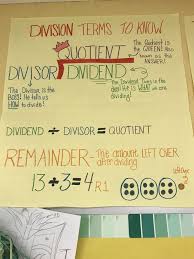 DIVISION TERMS TO KNOW
QUOTIENT
The Quotient is the QUEEN! Also known as the ANSWER!
DIVISOR DIVIDEND
The Divisor is the BOSS! He tells us HOW to divide!
The Dividend Tells is the deal. He is WHAT we are dividing!
DIVIDEND ÷ DIVISOR = QUOTIENT
REMAINDER - The amount LEFT OVER after dividing
13 ÷ 3 = 4 R1
Left Over